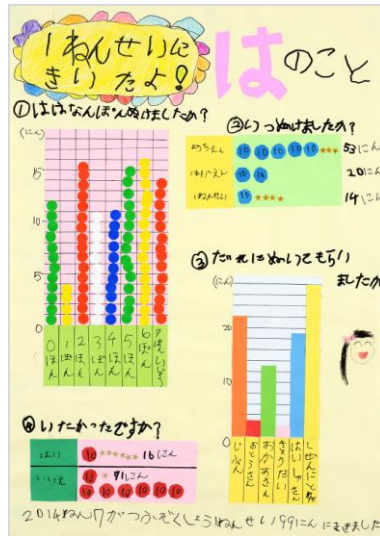 1ねんせいに
きいたよ!
はのこと
①ははなんぼんぬけましたか?
(にん)
15
10
5
0
0ほん
1ぽん
2ほん
3ぼん
4ほん
5ほん
6ぽん
7ほんいじょう
②いつぬけましたか?
ようちえん 10 10 10 10 10 53にん
10 10 20にん
1ねんせい 10 14にん
③だれにぬいてもらい
ましたか
(にん)
20
10
0
じぶん
おとうさん
おかあさん
きょうだい
はいしゃさん
④いたかったですか?
はい 10 16にん
いいえ 10 71にん
10 10 10 10 10 10
2014ねん7がつふぞくしょう1ねんせい99にんにききました